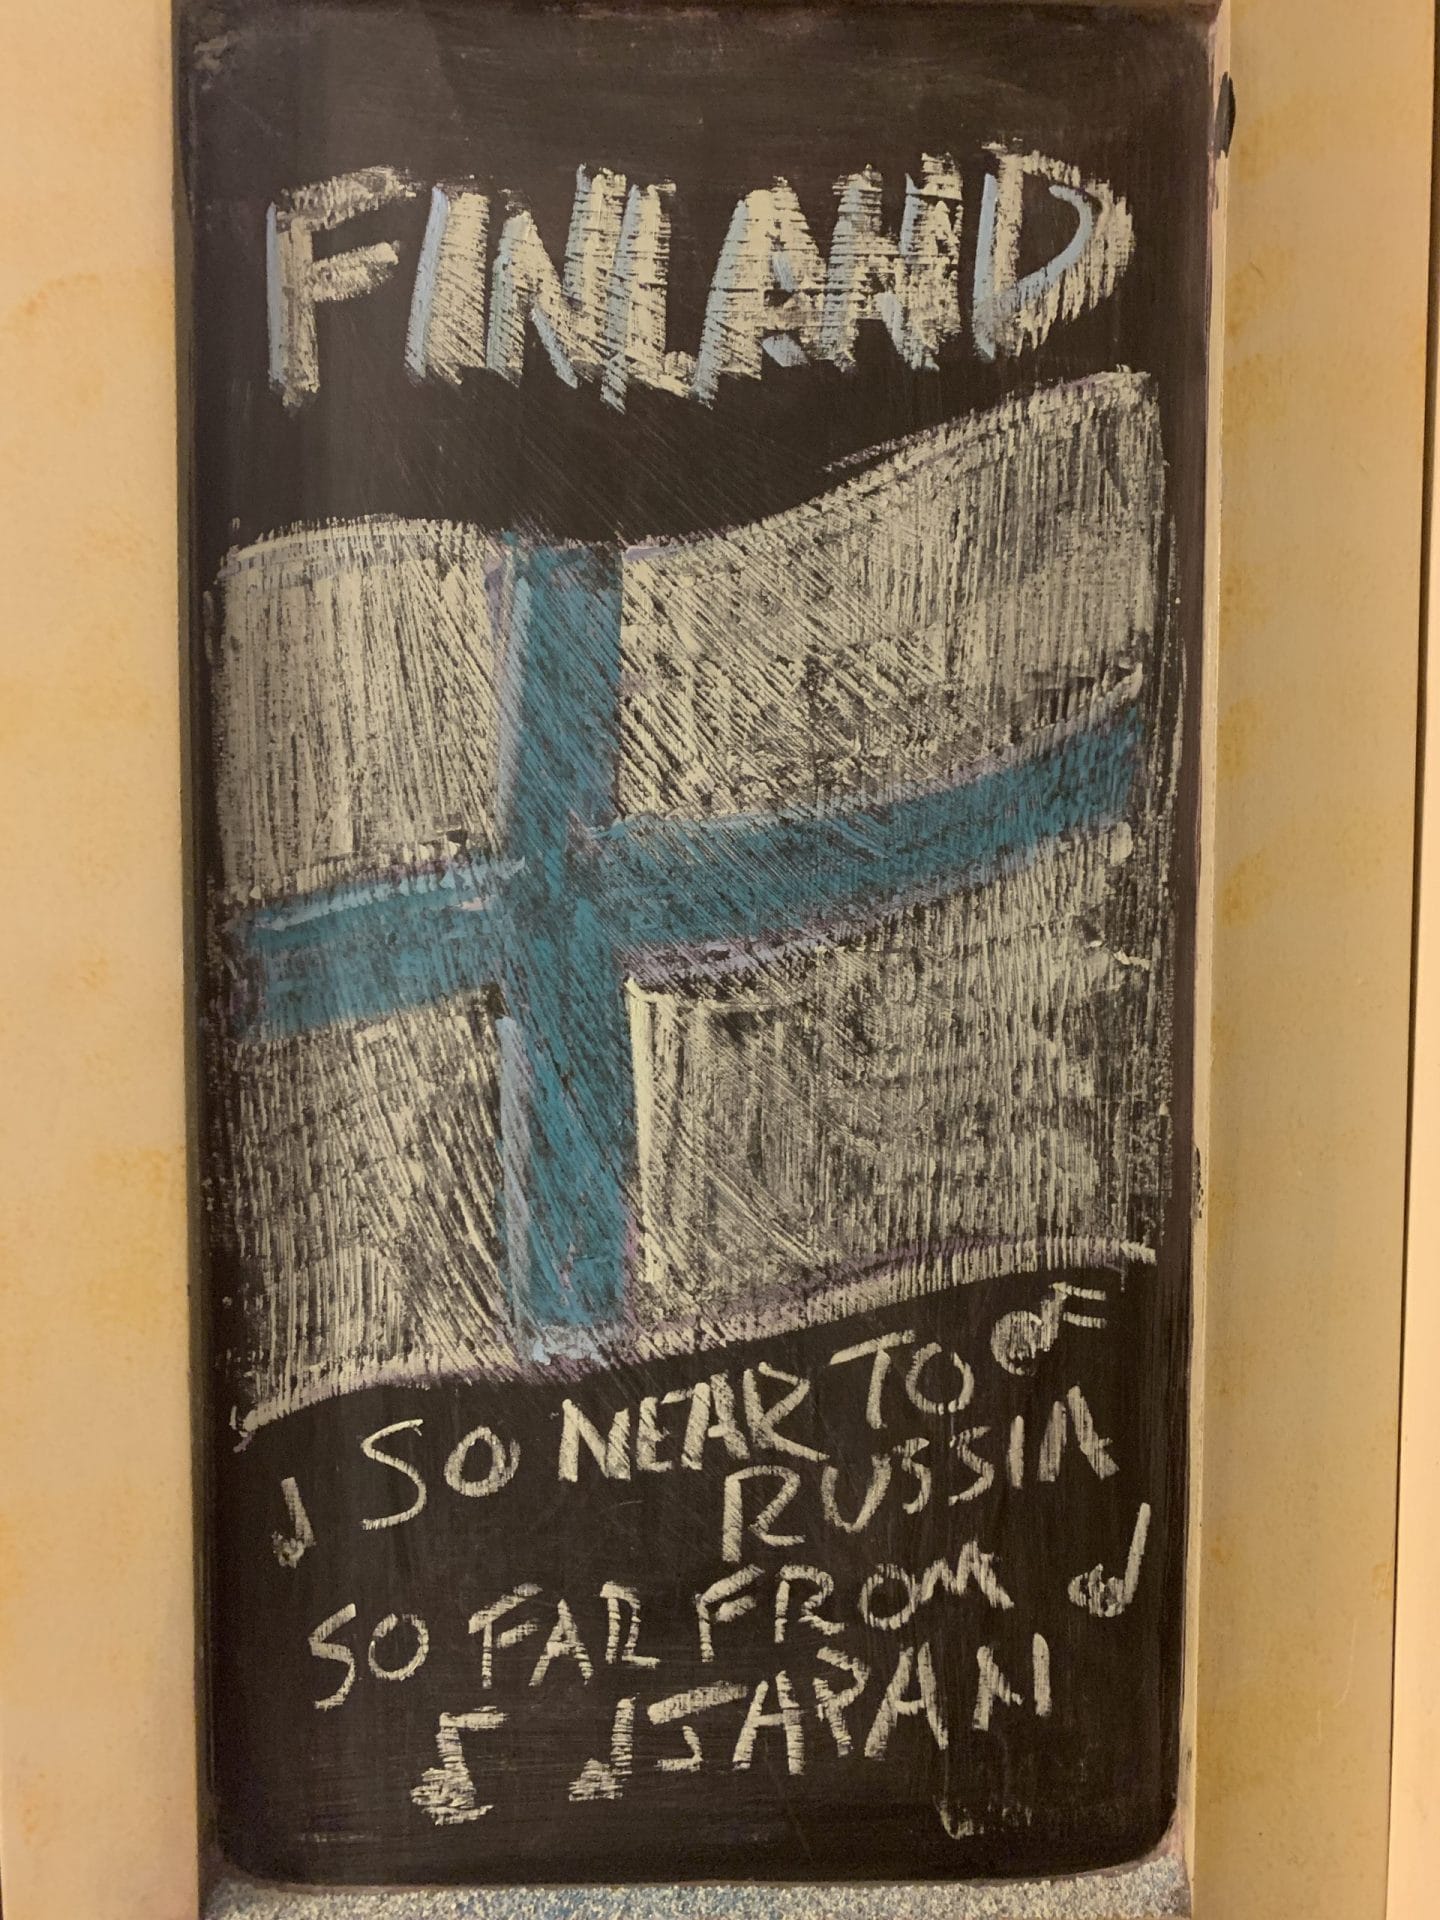 FINLAND
SO NEAR TO
RUSSIA
SO FAR FROM
JAPAN